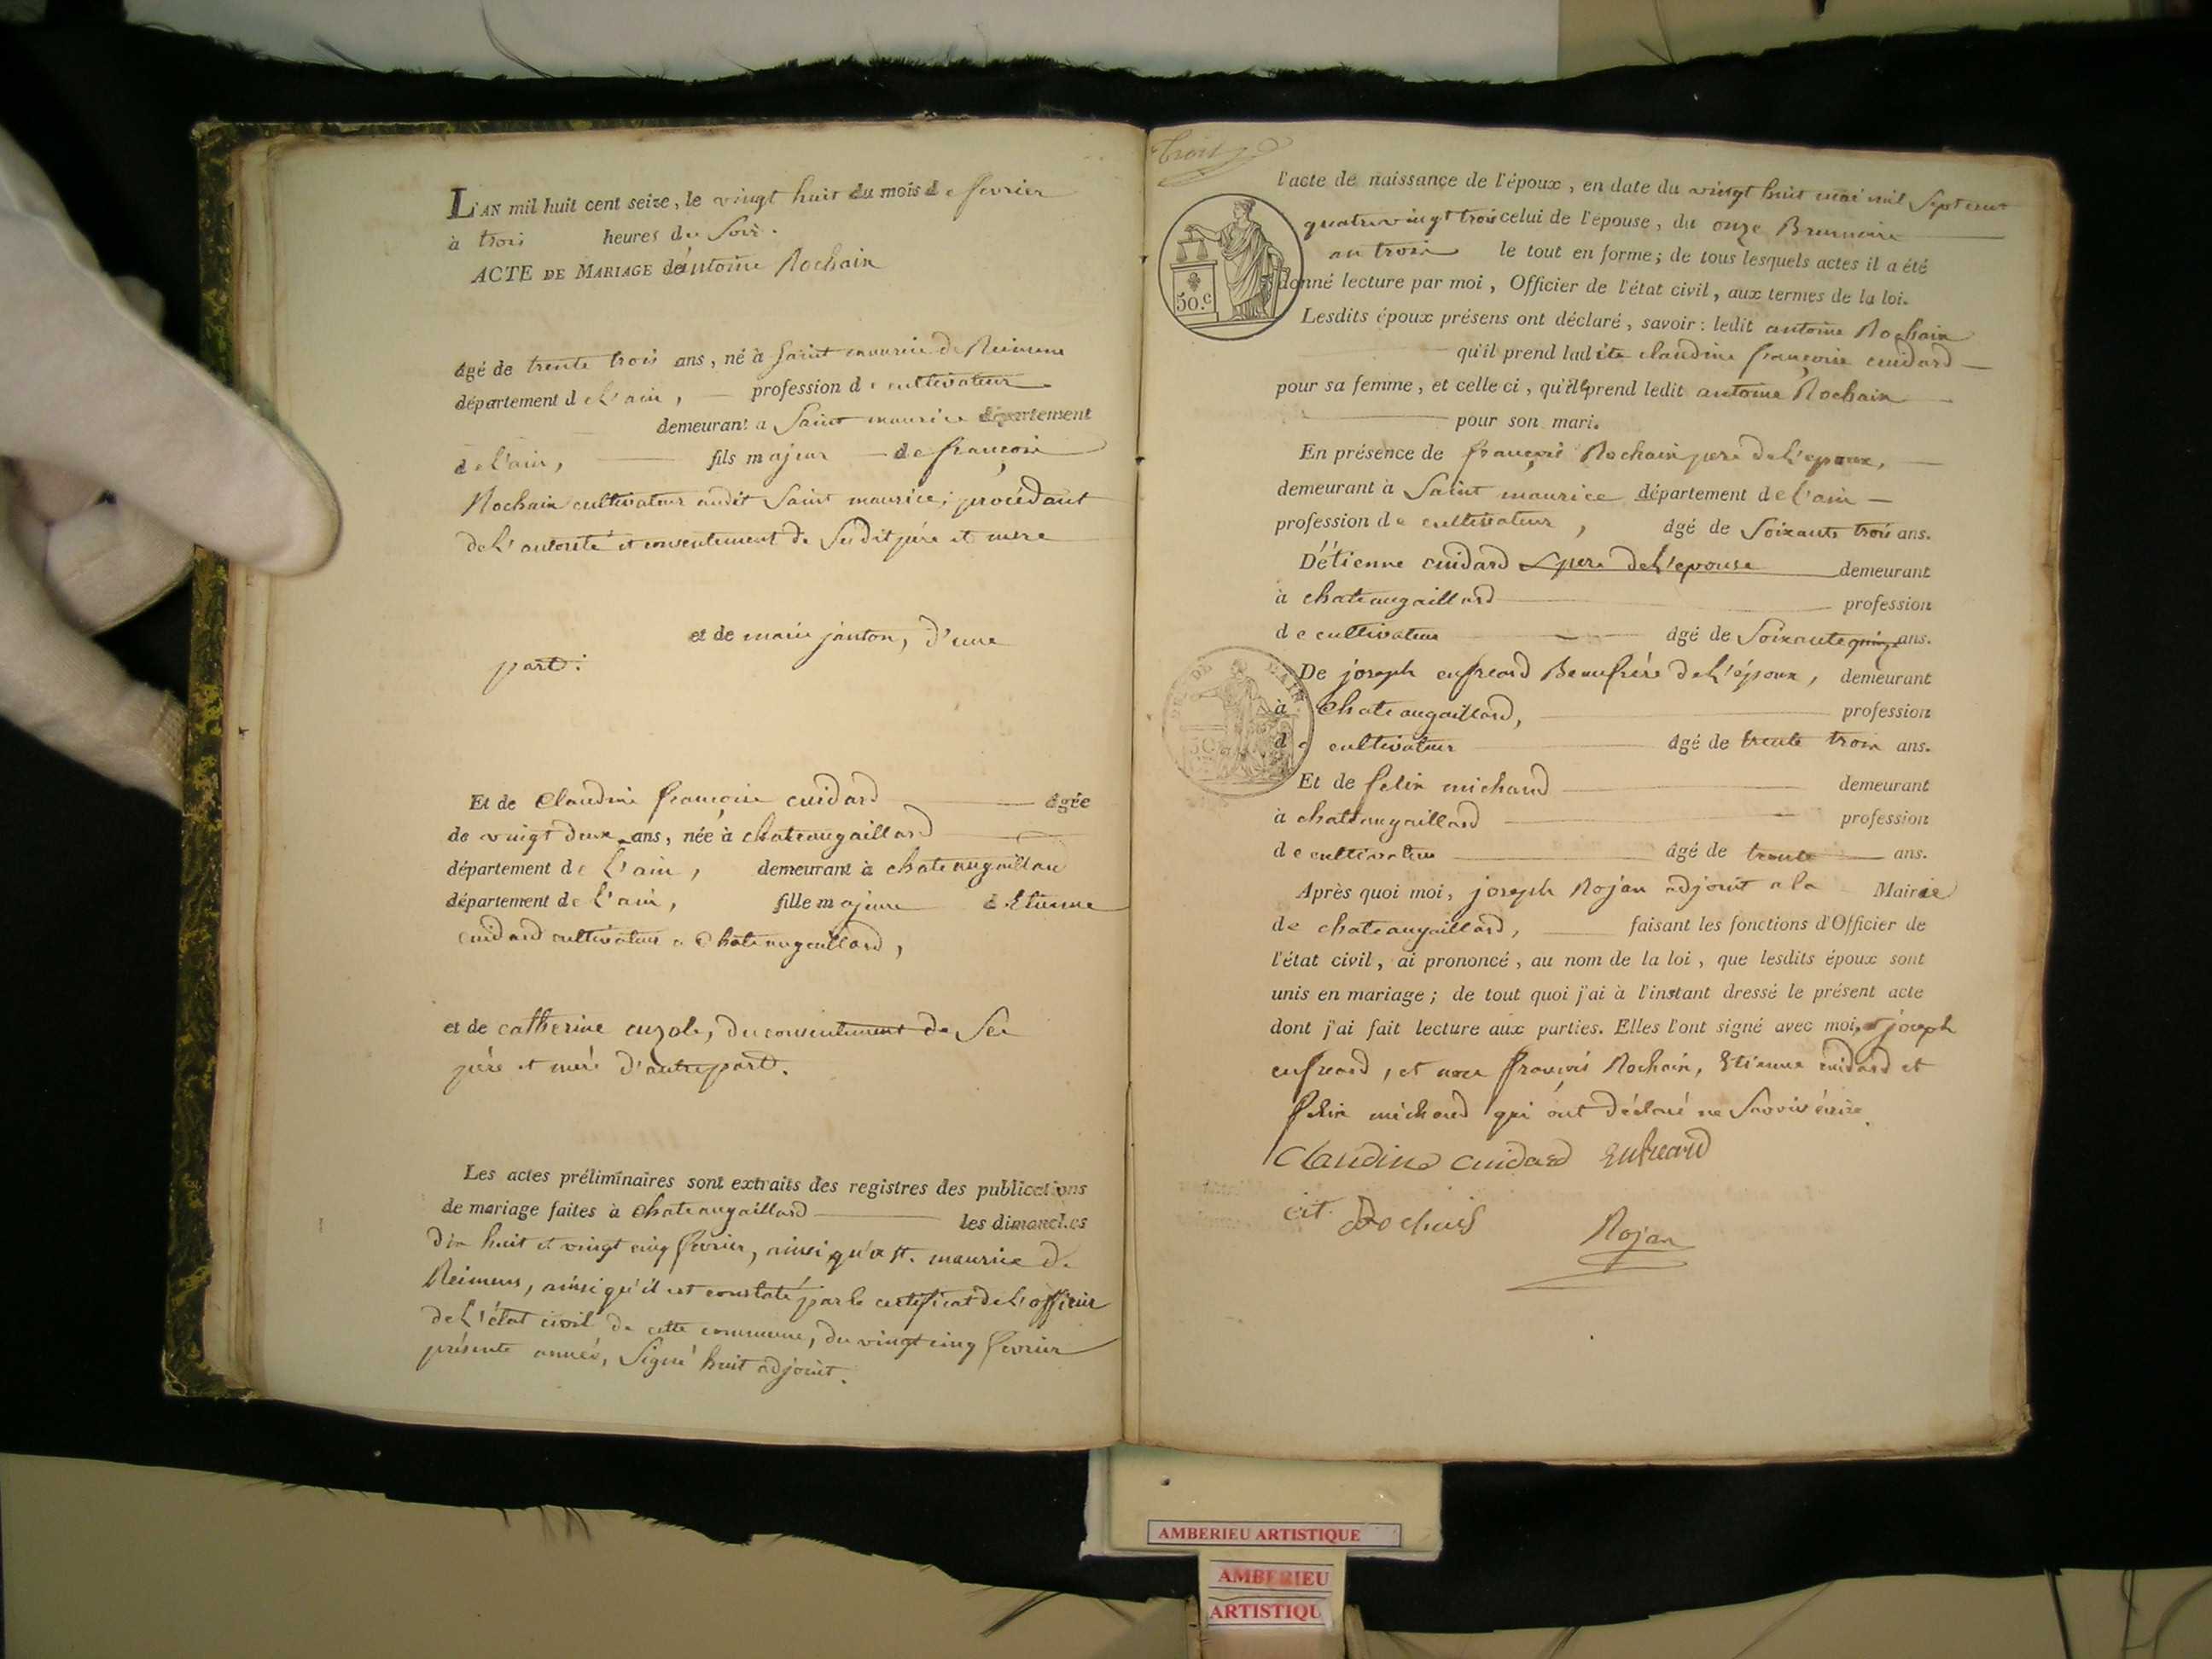 L'AN mil huit cent seize, le vingt huit du mois de fevrier
à trois heures du Soir.
ACTE DE MARIAGE de antoine Rochaix
âgé de trente trois ans, né à Saint maurice de Reimens
département de L'ain, profession de cultivateur
demeurant a Saint maurice département
de l'ain, fils majeur de françois
Rochaix cultivateur audit Saint maurice; procédant
de L'autorité et consentement de Sesdit père et mere
et de marie janton, d'une
part.
Et de Claudine françoise cuidard âgée
de vingt deux ans, née à chateaugaillard
département de L'ain, demeurant à chateaugaillard
département de L'ain, fille majeure d'Etienne
cuidard cultivateur a Chateaugaillard,
et de catherine cuzole, du consentement de Ses
père et meré d'autre part.
Les actes préliminaires sont extraits des registres des publications
de mariage faites à Chateaugaillard les dimanches
dix huit et vingt cinq fevrier, ainsi qu'a st. maurice de
Reimens, ainsi qu'il est constaté par le certificat de L'officier
de L'état civil de cette commune, du vingt cinq fevrier
présente année, Signé huit adjoint.
trois
l'acte de naissance de l'époux, en date du vingt huit mai mil Sept cent
quatre vingt trois celui de l'épouse, du onze Brumaire
an trois le tout en forme; de tous lesquels actes il a été
donné lecture par moi, Officier de l'état civil, aux termes de la loi.
50.c
Lesdits époux présens ont déclaré, savoir: ledit antoine Rochaix
qu'il prend ladite claudine françoise cuidard
pour sa femme, et celle ci, qu'elle prend ledit antoine Rochaix
pour son mari.
En présence de françois Rochaix pere de L'epoux,
demeurant à Saint maurice département de l'ain
profession de cultivateur, âgé de Soixante trois ans.
D'étienne cuidard pere de L'epouse demeurant
à chateaugaillard profession
de cultivateur âgé de Soixante quinze ans.
De joseph enfreard Beaufrére de L'époux, demeurant
à Chateaugaillard, profession
de cultivateur âgé de trente trois ans.
Et de felix michaud demeurant
à chateaugaillard profession
de cultivateur âgé de trente ans.
Après quoi moi, joseph Rojan adjoint a la Mairie
de chateaugaillard, faisant les fonctions d'Officier de
l'état civil, ai prononcé, au nom de la loi, que lesdits époux sont
unis en mariage; de tout quoi j'ai à l'instant dressé le présent acte
dont j'ai fait lecture aux parties. Elles l'ont signé avec moi, et joseph
enfreard, et non françois Rochaix, Etienne cuidard et
felix michaud qui ont déclaré ne Savoir écrire.
Claudine cuidard Enfreard
Rojan
AMBERIEU ARTISTIQUE
AMBERIEU
ARTISTIQU